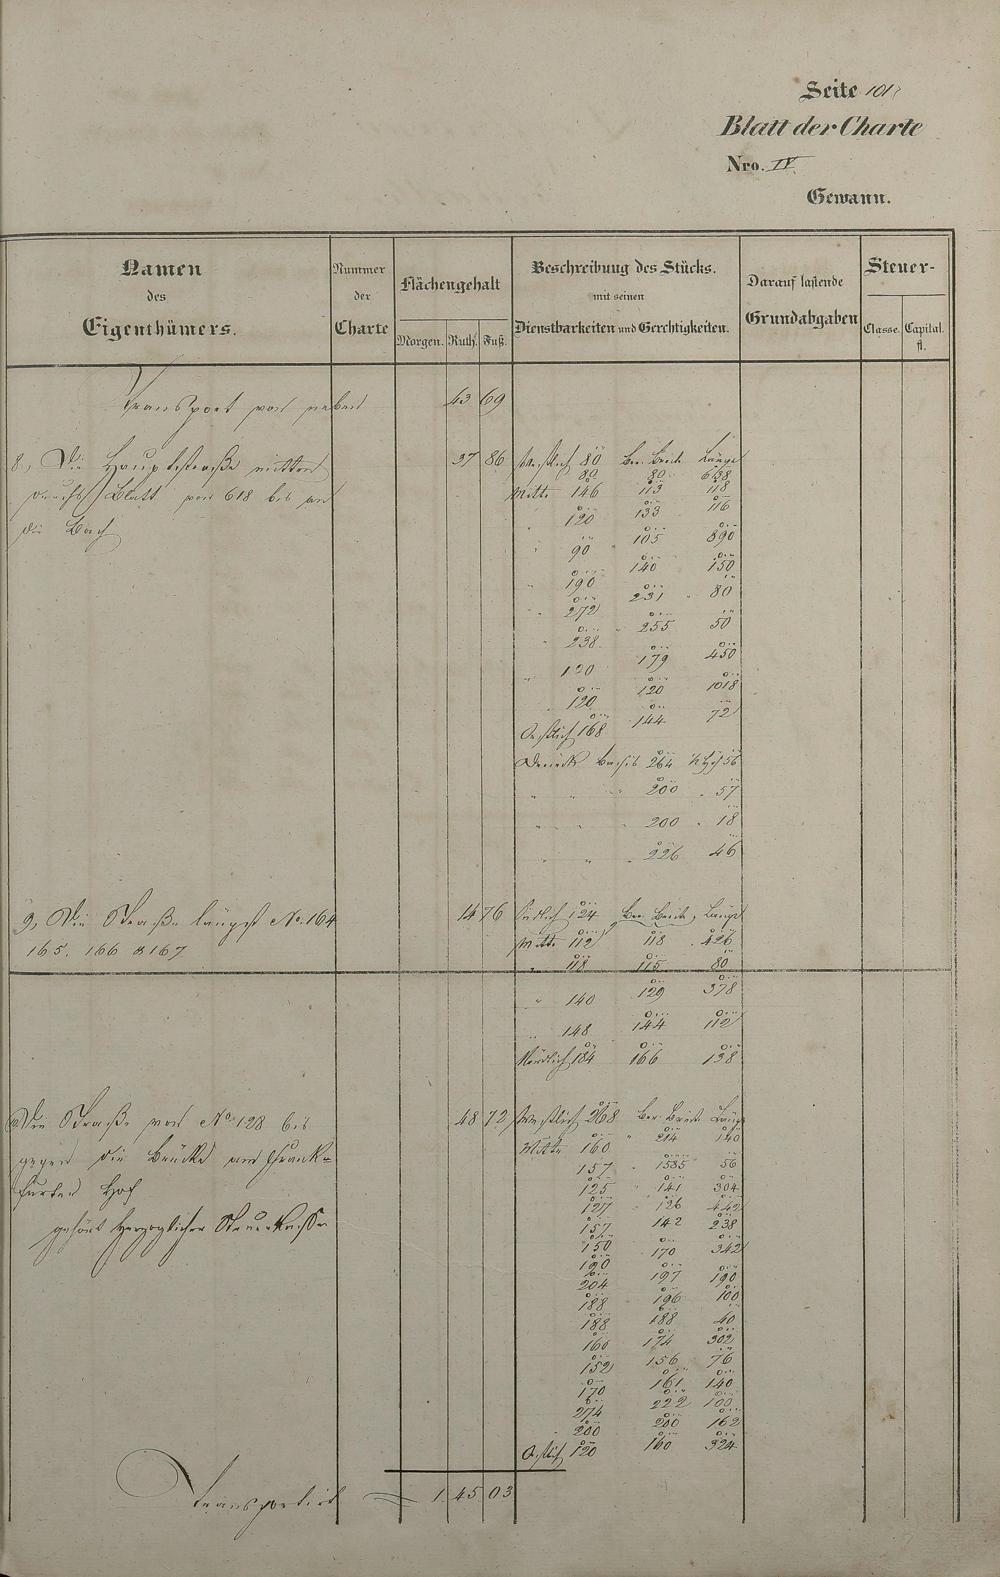 Seite 101
Blatt der Charte
Nro. IV
Gewann.
Namen des Eigenthümers.
Nummer der Charte
Flächengehalt
Morgen. Ruth. Fuß.
Beschreibung des Stücks. mit seinen Dienstbarkeiten und Gerechtigkeiten.
Darauf lastende Grundabgaben
Steuer-
Classe. Capital. fl.
Transport von neben 43 69
8, Die Hauptstraße mitten 37 86 Westlich 80 Ber. Breite Länge
80 80 638
durchs Blatt von 618 bis an Mitte 146 113 118
120 133 116
die Bach
90 105 890
190 140 150
272 231 80
238 255 50
120 179 450
120 120 1018
Oestlich 168 144 72
Dreieck Basis 264 ½ Höh 56
" " " 200 " 57
" " " 200 " 18
" " " 226 46
9, Die Straße längst No. 164 14 76 Südlich 124 Ber. Breite, Länge
165. 166 & 167 Mitte 112 118 426
" 118 115 80
" 140 129 378
" 148 144 112
Nördlich 184 166 138
Die Straße von No. 128 bis 48 72 Westlich 268 Ber. Breite Länge
Mitte 160 " 214 140
gegen die Brücke am Frank=
157 " 1585 56
furter Hof 125 " 141 304
127 " 126 442
gehört Herzoglicher Steuerkasse 157 142 238
150 170 342
190
204 197 190
188 196 100
188 188 40
160 174 302
152 156 76
170 161 140
274 222 100
200 200 162
Oestlich 120 160 324
Transportirt 1 45 03